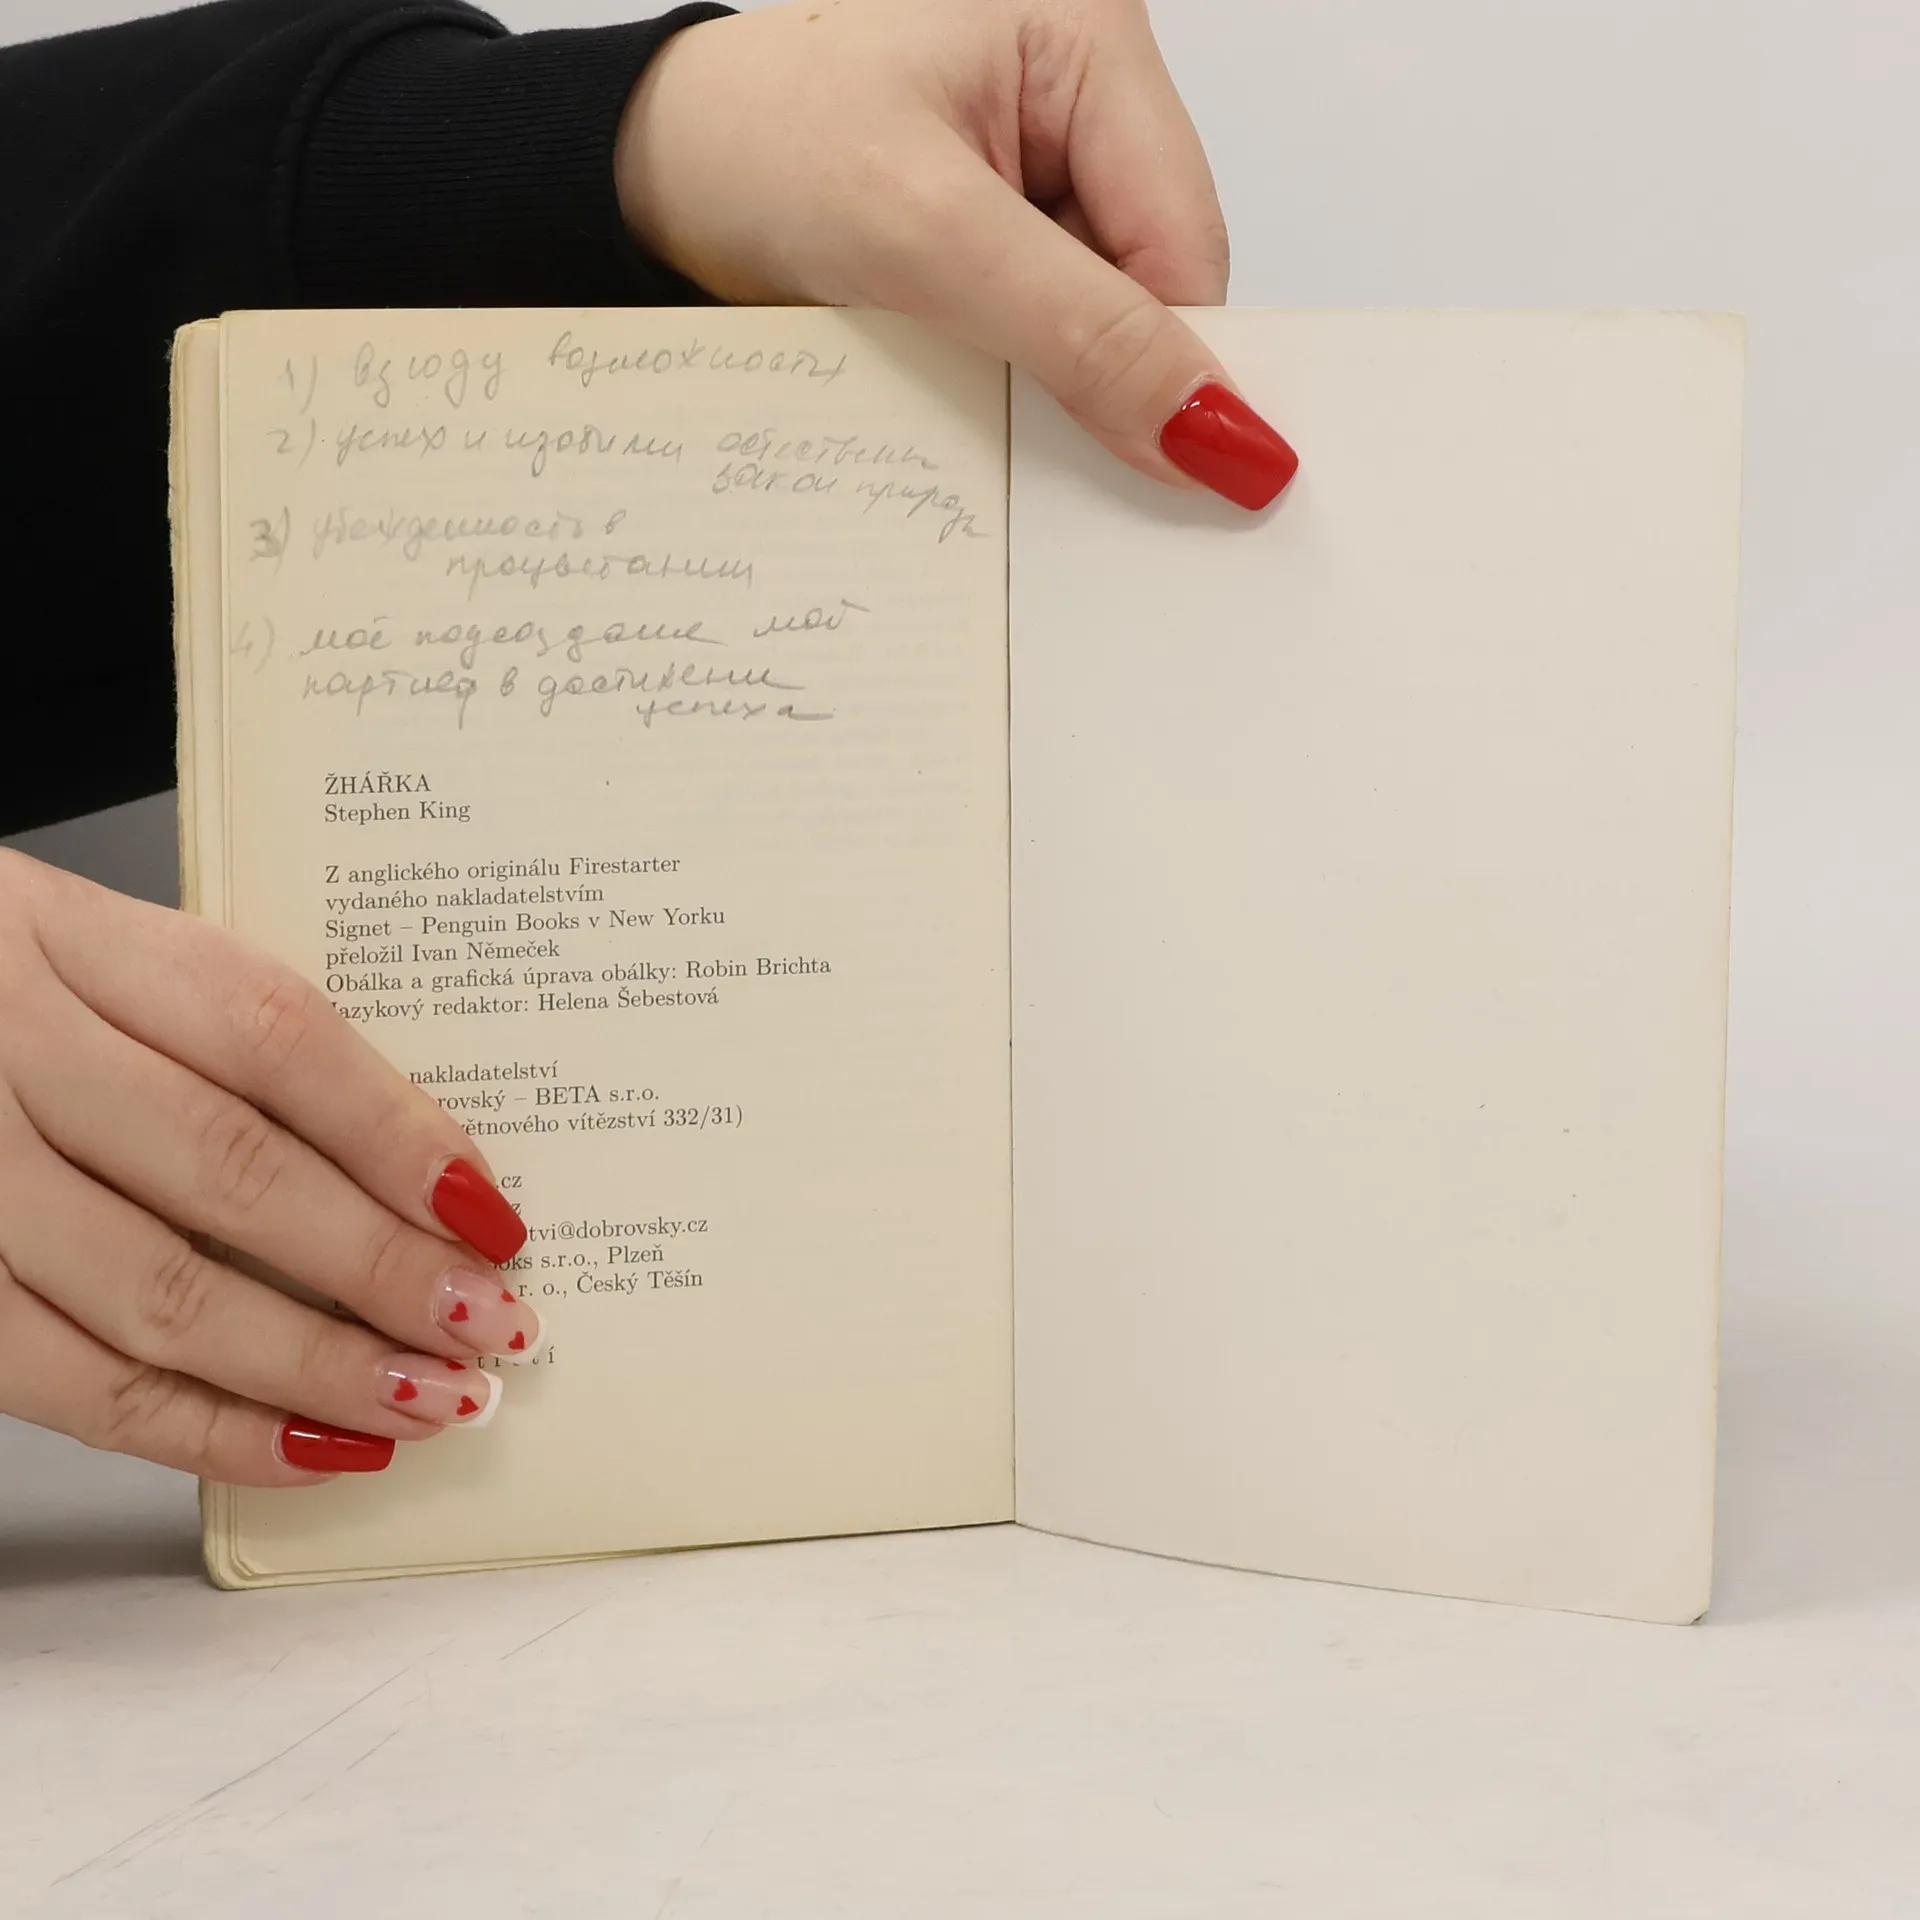 1) взюду возможность
2) успех и изобили естествены
закон природы
3) убежденность в
процветании
4) моё подсоздание мой
партнёр в достижени
успеха
ŽHÁŘKA
Stephen King
Z anglického originálu Firestarter
vydaného nakladatelstvím
Signet – Penguin Books v New Yorku
přeložil Ivan Němeček
Obálka a grafická úprava obálky: Robin Brichta
Jazykový redaktor: Helena Šebestová
nakladatelství
rovský – BETA s.r.o.
větnového vítězství 332/31)
.cz
z
tvi@dobrovsky.cz
oks s.r.o., Plzeň
r. o., Český Těšín